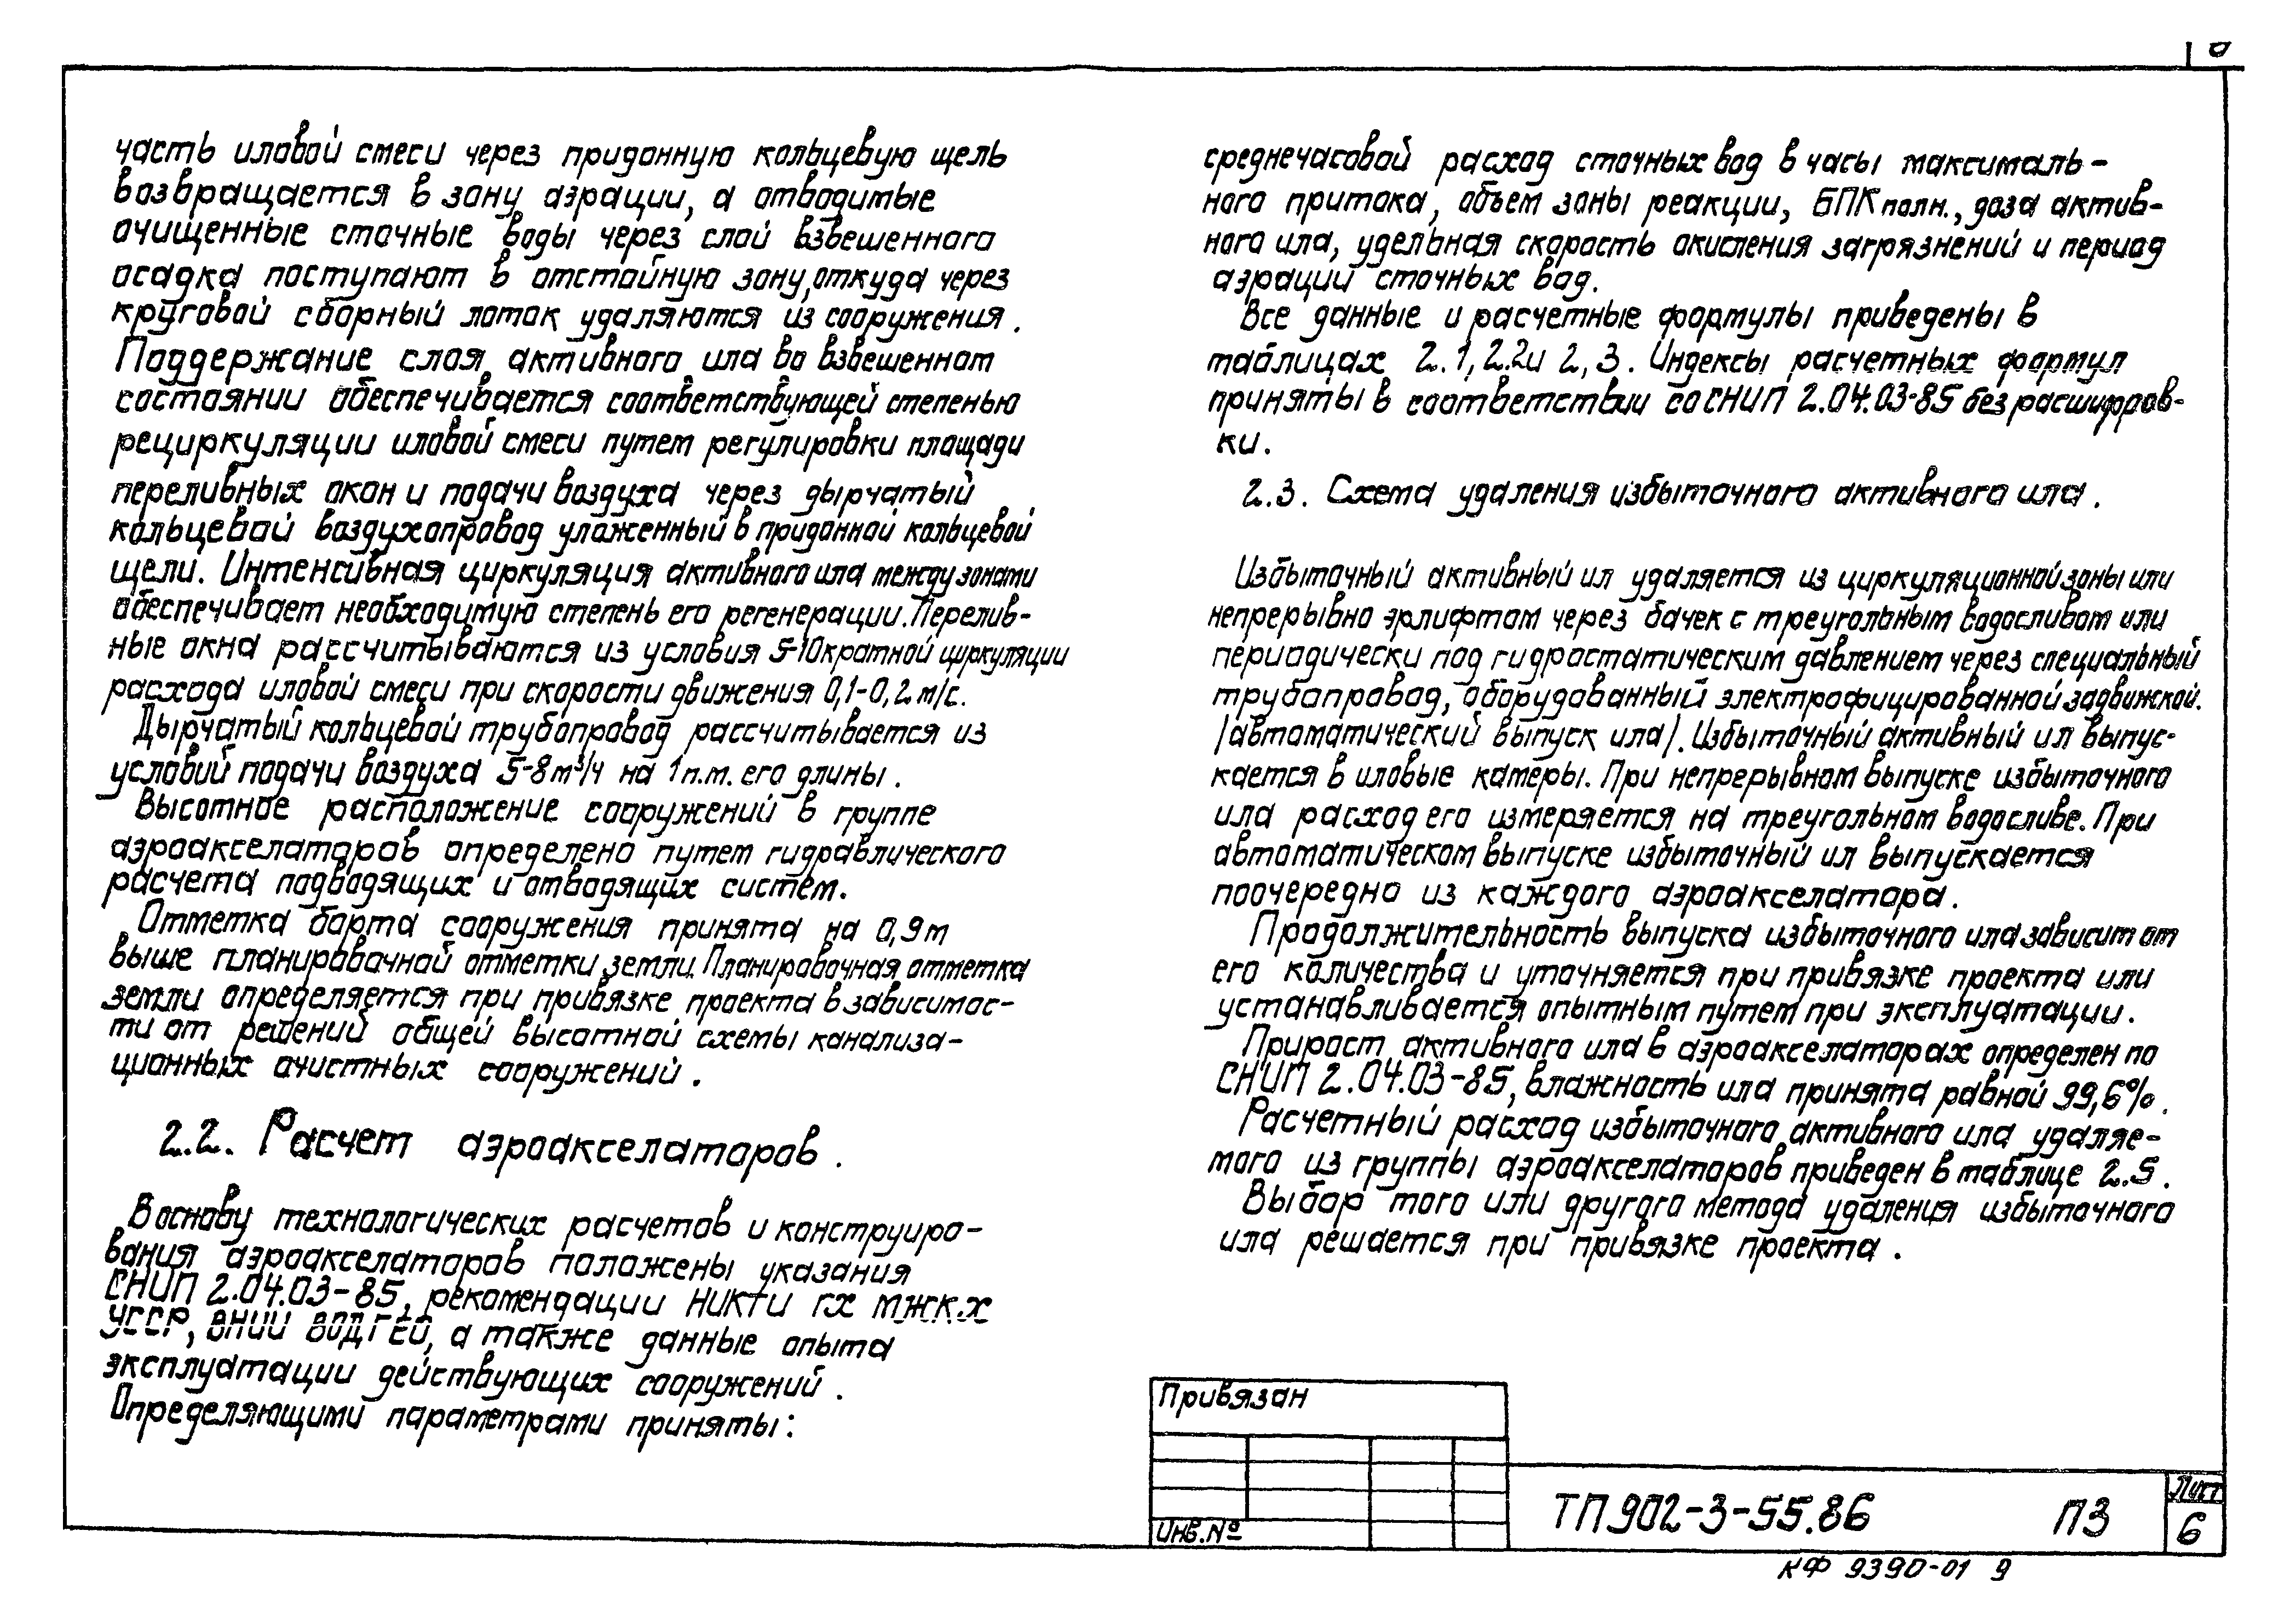 часть иловой смеси через придонную кольцевую щель
возвращается в зону аэрации, а отводимые
очищенные сточные воды через слой взвешенного
осадка поступают в отстойную зону, откуда через
круговой сборный лоток удаляются из сооружения.
Поддержание слоя активного ила во взвешенном
состоянии обеспечивается соответствующей степенью
рециркуляции иловой смеси путем регулировки площади
переливных окон и подачи воздуха через дырчатый
кольцевой воздухопровод уложенный в придонной кольцевой
щели. Интенсивная циркуляция активного ила между зонами
обеспечивает необходимую степень его регенерации. Перелив-
ные окна рассчитываются из условия 5-10кратной циркуляции
расхода иловой смеси при скорости движения 0,1-0,2 м/с.
Дырчатый кольцевой трубопровод рассчитывается из
условий подачи воздуха 5-8 м³/ч на 1 п.м. его длины.
Высотное расположение сооружений в группе
аэроакселаторов определено путем гидравлического
расчета подводящих и отводящих систем.
Отметка борта сооружения принята на 0,9 м
выше планировочной отметки земли. Планировочная отметка
земли определяется при привязке проекта в зависимос-
ти от решений общей высотной схемы канализа-
ционных очистных сооружений.
2.2. Расчет аэроакселаторов.
В основу технологических расчетов и конструиро-
вания аэроакселаторов положены указания
СНИП 2.04.03-85, рекомендации НИКТИ ГХ МЖК.Х
УССР, ВНИИ ВОДГЕО, а также данные опыта
эксплуатации действующих сооружений.
Определяющими параметрами приняты:
среднечасовой расход сточных вод в часы максималь-
ного притока, объем зоны реакции, БПК полн., доза актив-
ного ила, удельная скорость окисления загрязнений и период
аэрации сточных вод.
Все данные и расчетные формулы приведены в
таблицах 2.1, 2.2 и 2,3. Индексы расчетных формул
приняты в соответствии со СНИП 2.04.03-85 без расшифров-
ки.
2.3. Схема удаления избыточного активного ила.
Избыточный активный ил удаляется из циркуляционной зоны или
непрерывно эрлифтом через бачек с треугольным водосливом или
периодически под гидростатическим давлением через специальный
трубопровод, оборудованный электрофицированной задвижкой.
/автоматический выпуск ила/. Избыточный активный ил выпус-
кается в иловые камеры. При непрерывном выпуске избыточного
ила расход его измеряется на треугольном водосливе. При
автоматическом выпуске избыточный ил выпускается
поочередно из каждого аэроакселатора.
Продолжительность выпуска избыточного ила зависит от
его количества и уточняется при привязке проекта или
устанавливается опытным путем при эксплуатации.
Прирост активного ила в аэроакселаторах определен по
СНИП 2.04.03-85, влажность ила принята равной 99,6%.
Расчетный расход избыточного активного ила удаляе-
мого из группы аэроакселаторов приведен в таблице 2.5.
Выбор того или другого метода удаления избыточного
ила решается при привязке проекта.
Привязан
Инв.№
ТП 902-3-55.86 ПЗ
Лист
6
КФ 9390-01 9